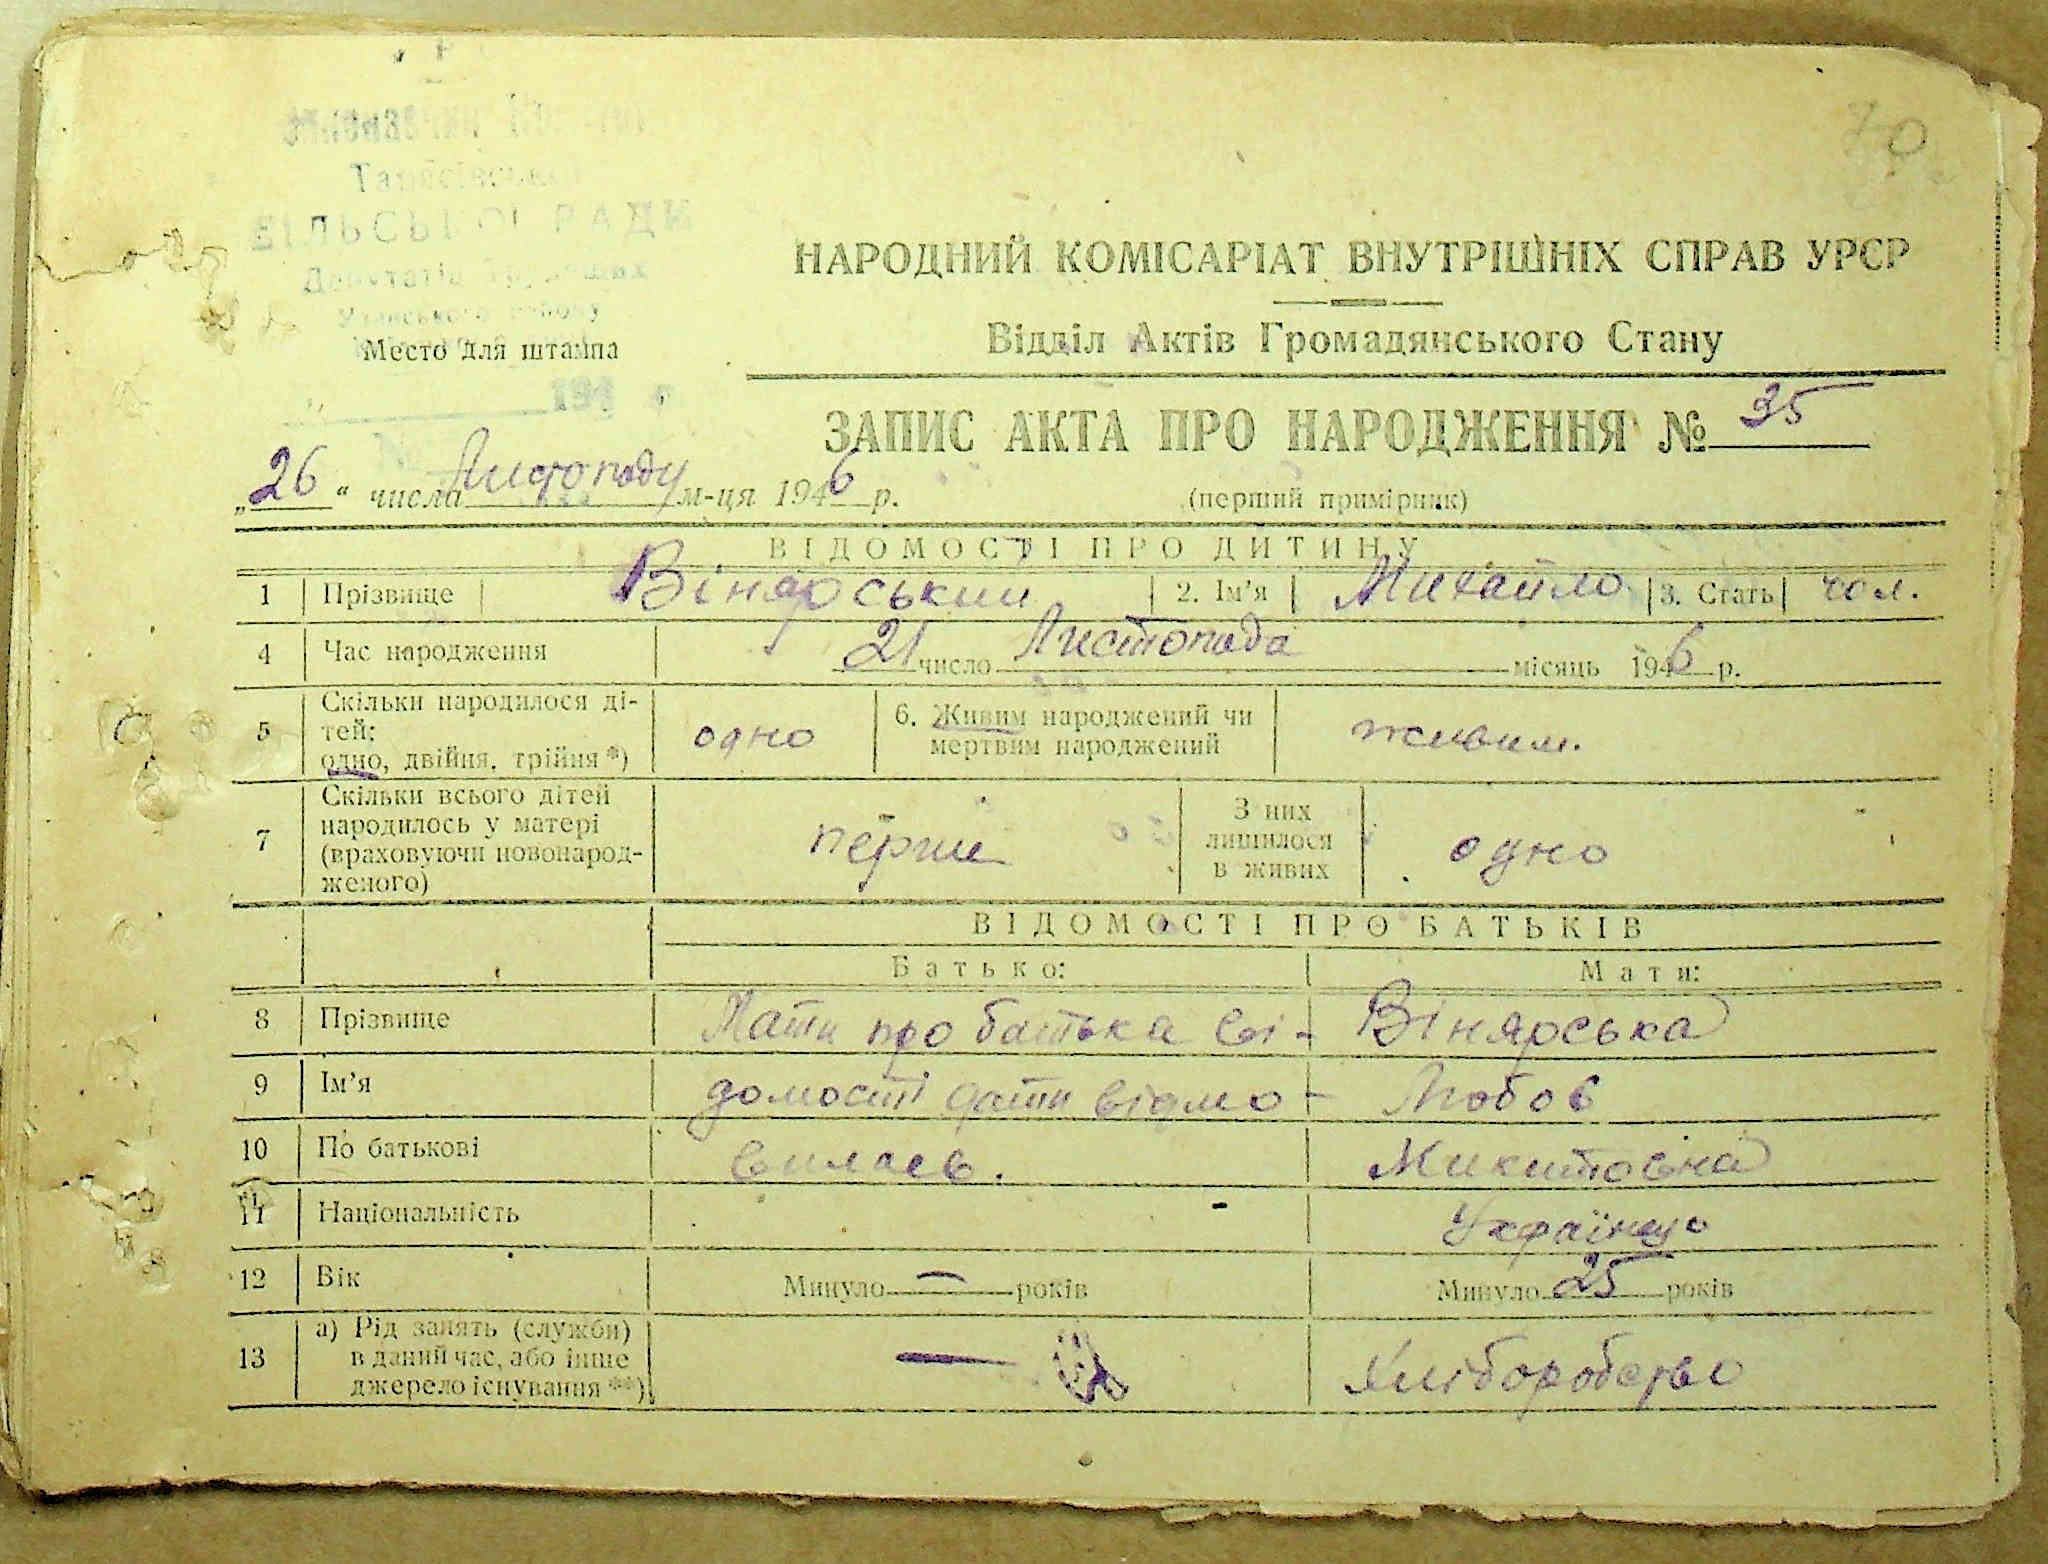 70
СІЛЬСЬКОЇ РАДИ
Место для штампа
НАРОДНИЙ КОМІСАРІАТ ВНУТРІШНІХ СПРАВ УРСР
Відділ Актів Громадянського Стану
ЗАПИС АКТА ПРО НАРОДЖЕННЯ № 35
„26“ числа Листопаду м-ця 1946 р.
(перший примірник)
ВІДОМОСТІ ПРО ДИТИНУ
1 Прізвище Вінярський 2. Ім'я Михайло 3. Стать чол.
4 Час народження 21 число Листопада місяць 1946 р.
5 Скільки народилося ді-
тей:
одно, двійня, трійня *)
одно
6. Живим народжений чи
мертвим народжений
живим.
7 Скільки всього дітей
народилось у матері
(враховуючи новонарод-
женого)
перше
З них
лишилося
в живих
одно
ВІДОМОСТІ ПРО БАТЬКІВ
Батько: Мати:
8 Прізвище Мати про батька ві- Вінярська
9 Ім'я домості дати відмо- Любов
10 По батькові вилась. Микитовна
11 Національність - Українцю
12 Вік Минуло — років Минуло 25 років
13 а) Рід занять (служби)
в даний час, або інше
джерело існування **)
— Хліборобство